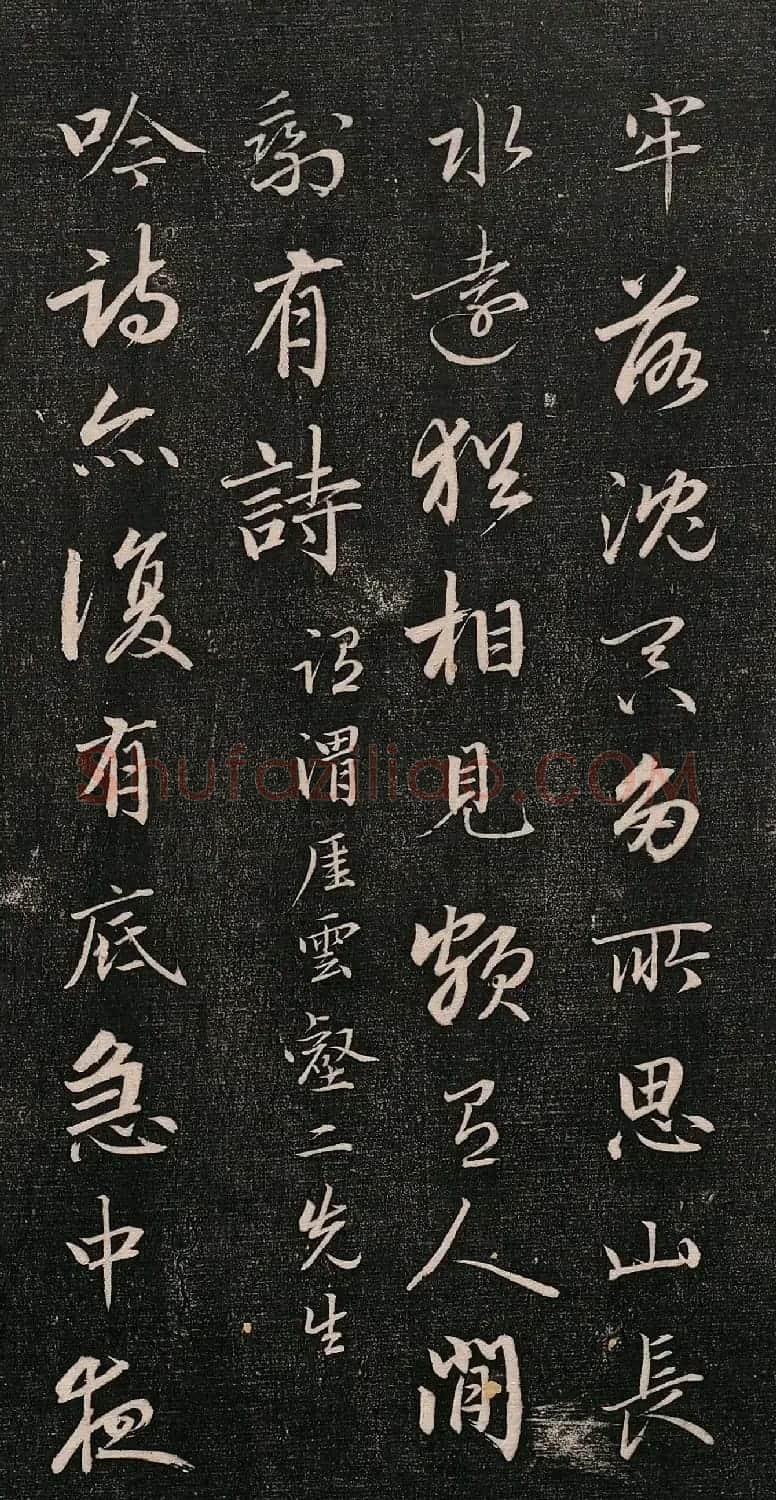 牢落沈冥所思山長
水遠猶相見人間
剩有詩 謂渭厓雲壑二先生
吟詩亦復有底急中夜
shufaziliao.com